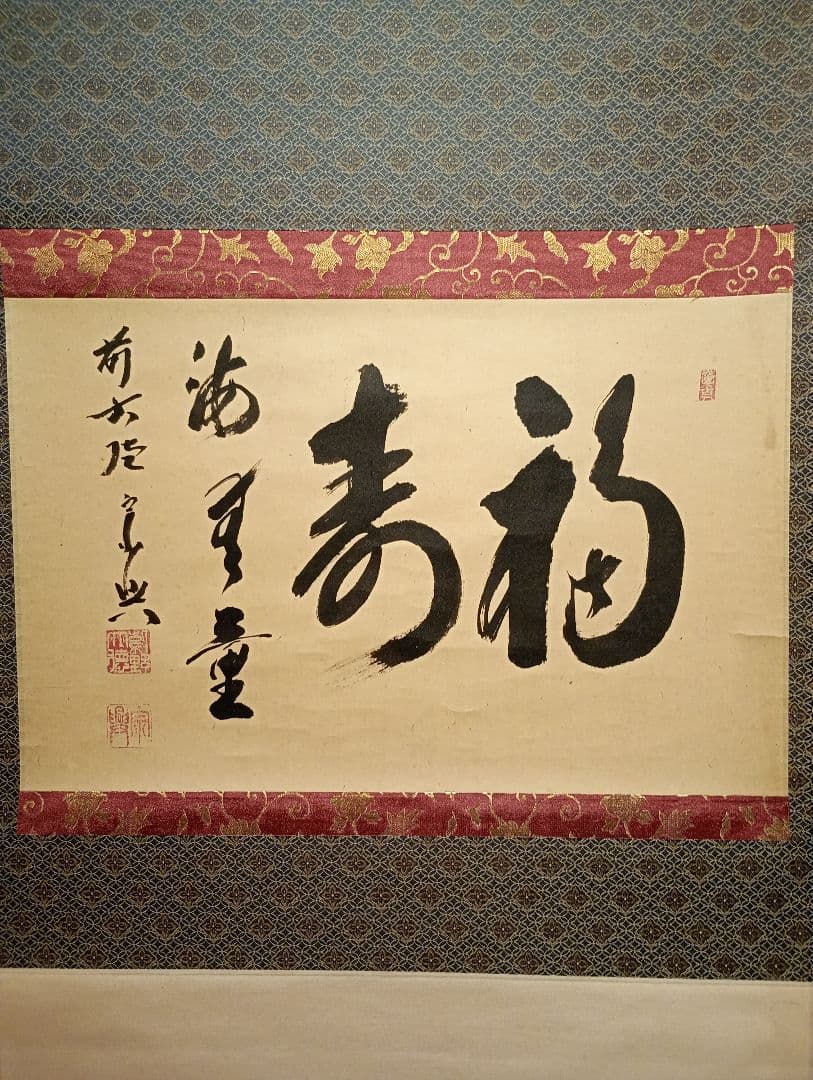 福寿
海無量
前大徳宗興